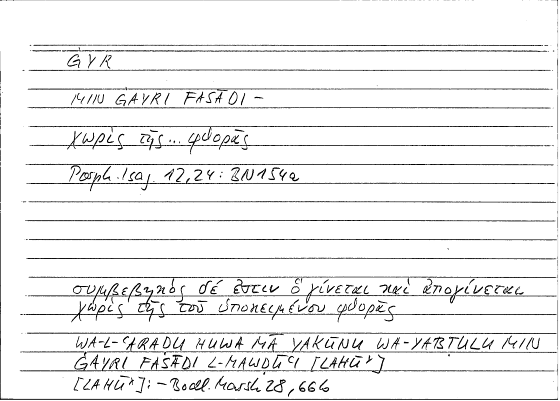 ĠYR
MIN ĠAYRI FASĀDI –
χωρὶς τῆς... φθορᾶς
Porph. Isag. 12,24: BN154a
συμβεβηκὸς δέ ἐστιν ὃ γίνεται καὶ ἀπογίνεται
χωρὶς τῆς τοῦ ὑποκειμένου φθορᾶς
WA-L-ʿARAḌU HUWA MĀ YAKŪNU WA-YABṬULU MIN
ĠAYRI FASĀDI L-MAWḌŪʿI [LAHŪ*]
[LAHŪ*]: – Bodl. Marsh 28, 66b